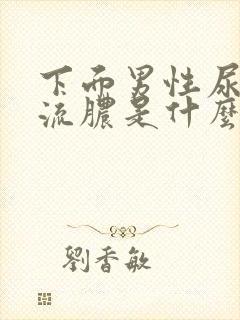 下而男性尿
流膿是什麼
劉香敏